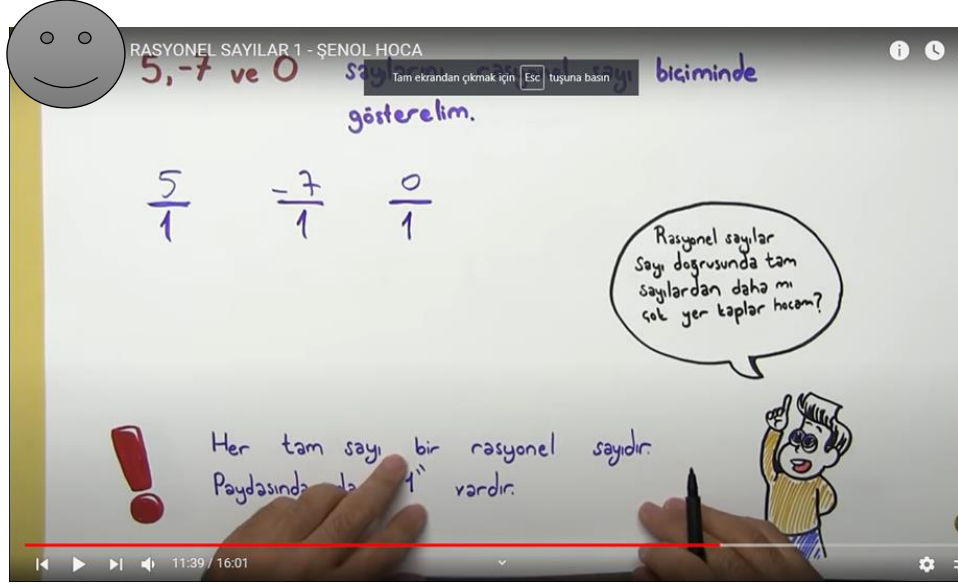 RASYONEL SAYILAR 1 - ŞENOL HOCA
5, -7 ve 0 biçiminde
Tam ekrandan çıkmak için Esc tuşuna basın
gösterelim.
5/1 -7/1 0/1
Rasyonel sayılar
Sayı doğrusunda tam
sayılardan daha mı
çok yer kaplar hocam?
Her tam sayı bir rasyonel sayıdır.
Paydasında 1" vardır.
11:39 / 16:01